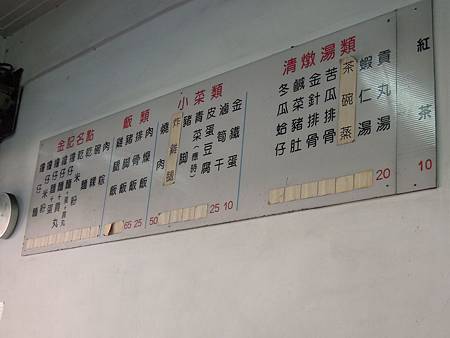 金記名點
擔仔麵
擔仔米粉
乾米粉
乾麵
碗粿
肉粽
飯類
雞腿飯
豬腳飯
排骨飯
肉燥飯
65
25
小菜類
燒肉
炸雞腿
豬腳
青菜(應時)
皮蛋豆腐
滷筍干
金鐵蛋
50
25
10
清燉湯類
冬瓜蛤仔
鹹菜豬肚
金針排骨
苦瓜排骨
茶碗蒸
蝦仁湯
貢丸湯
20
紅茶
10